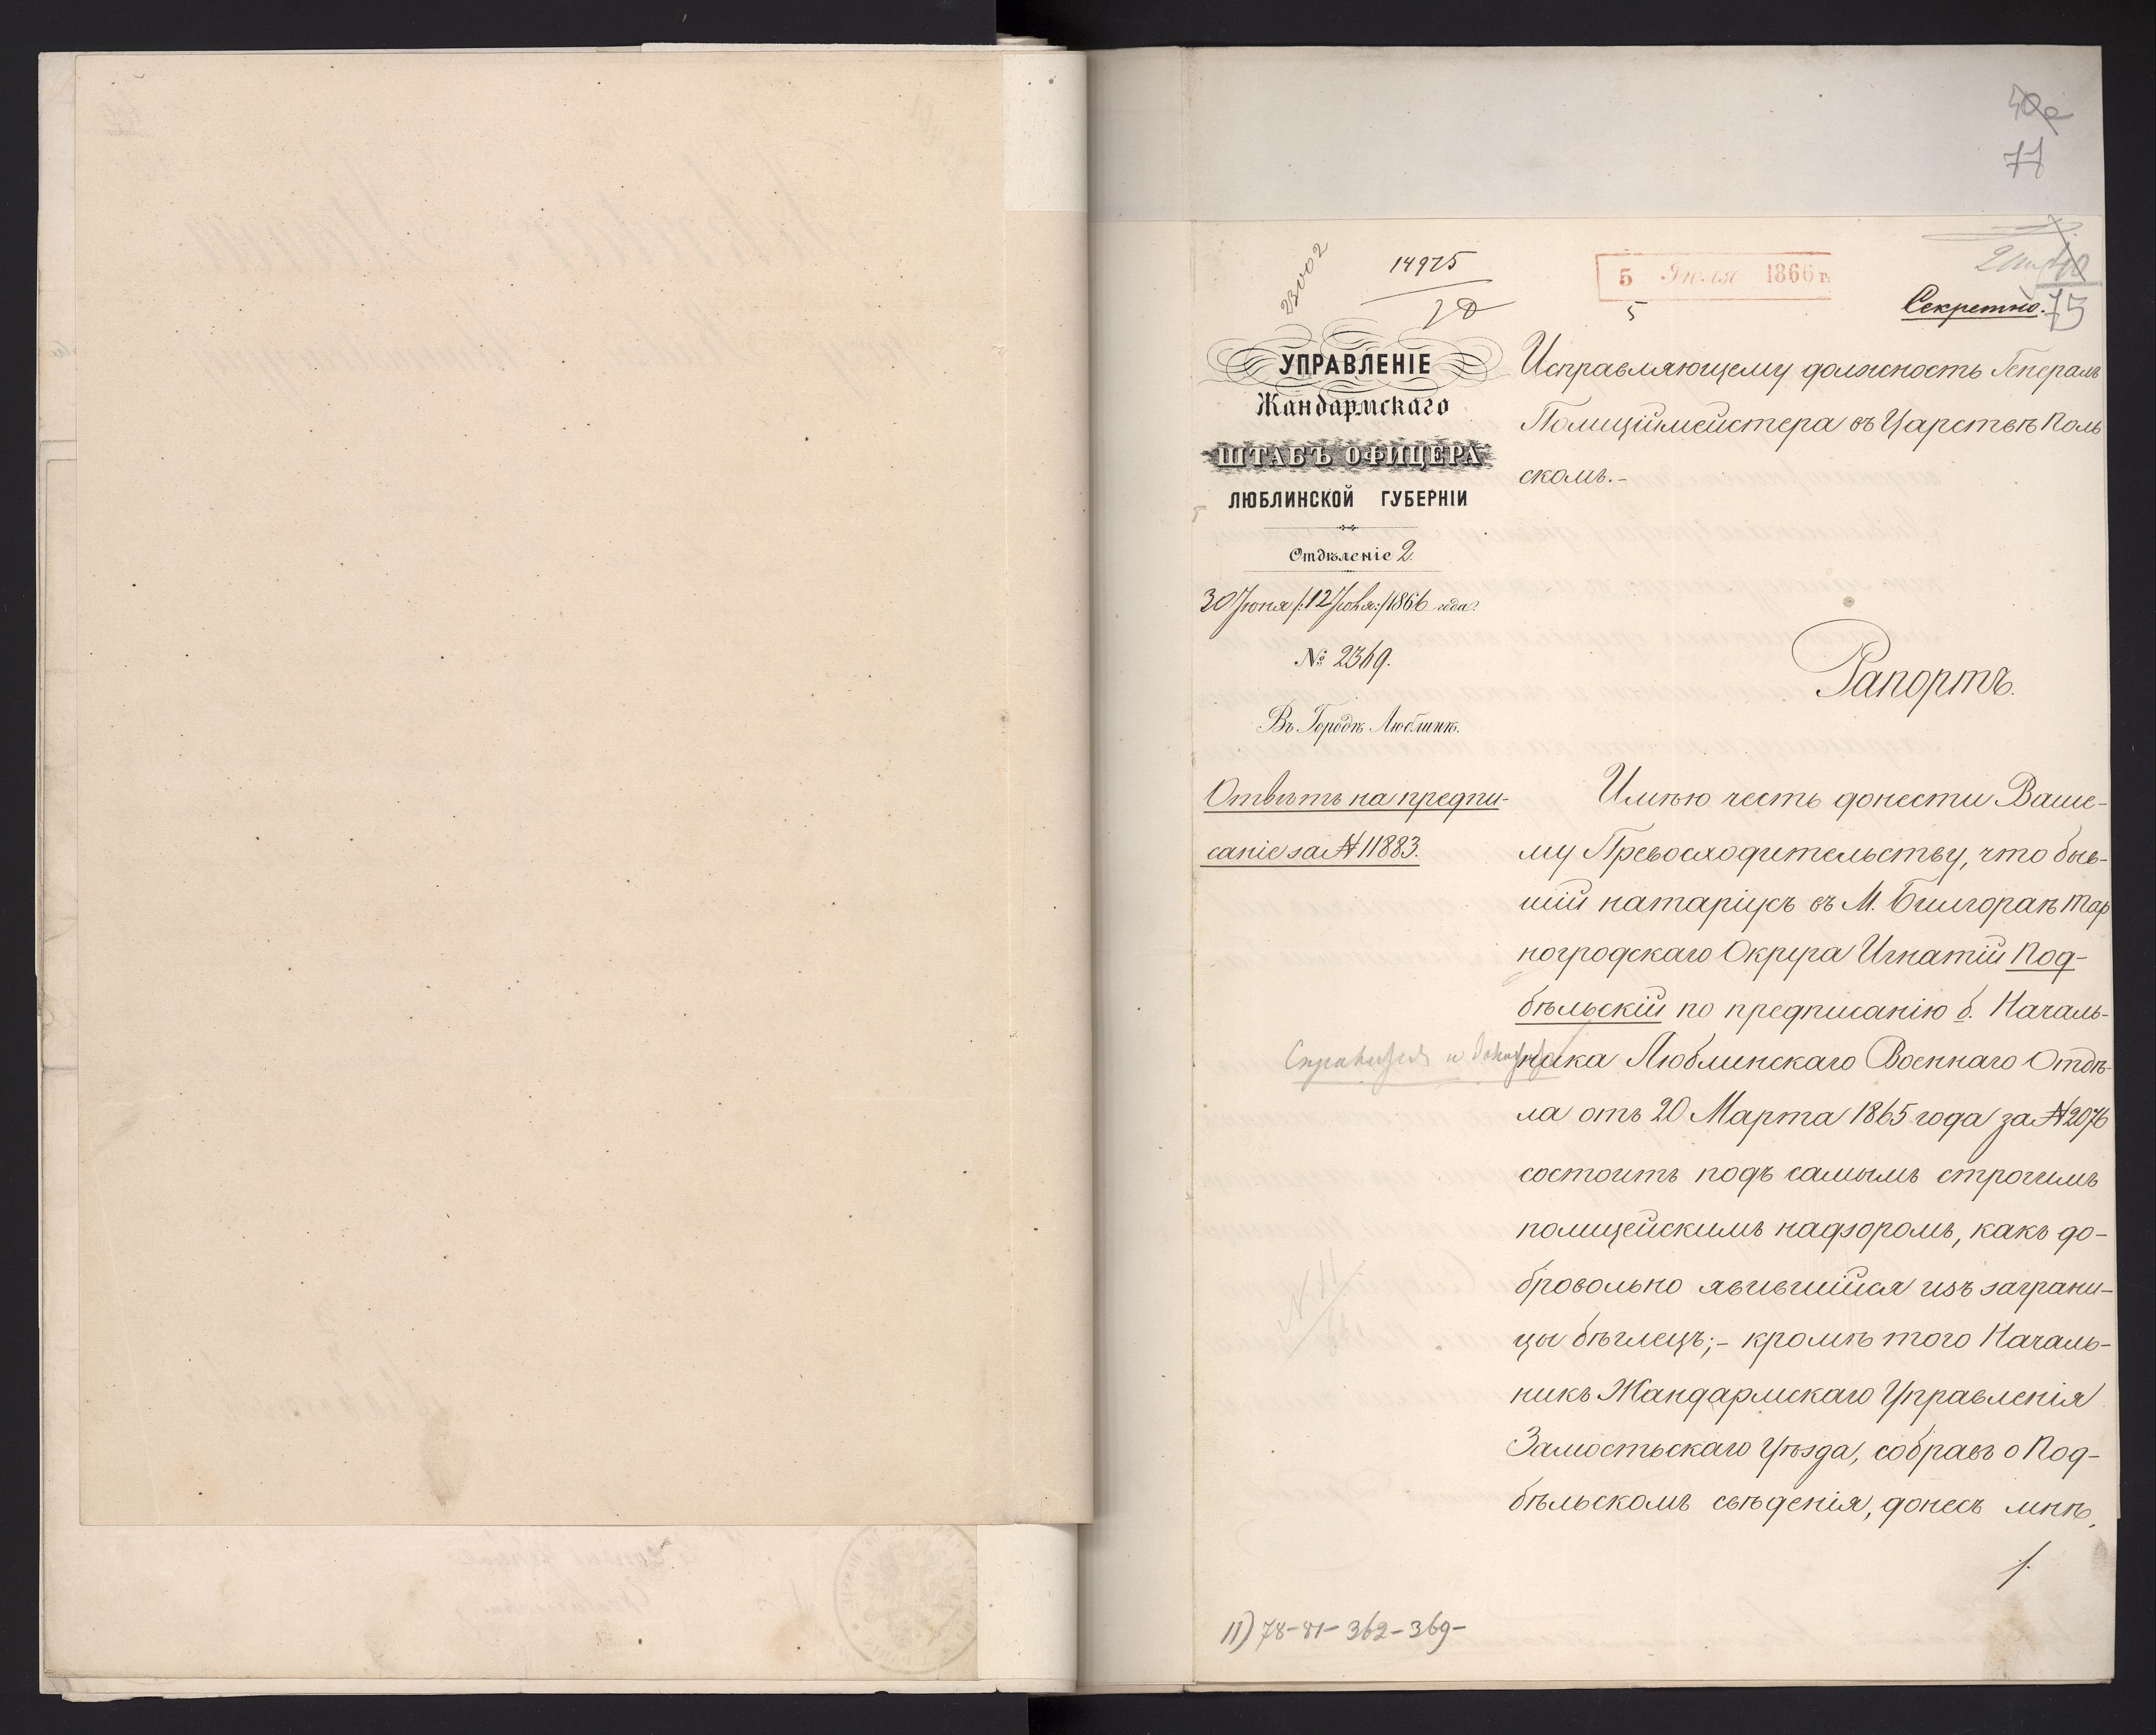 77
23002
14925
5 Июля 1866 г.
5
Секретно.
75
УПРАВЛЕНІЕ
Жандармскаго
ШТАБЪ ОФИЦЕРА
ЛЮБЛИНСКОЙ ГУБЕРНІИ
Отдѣленіе 2.
30 Іюня /:12 Іюля:/ 1866 года.
№ 2369.
Въ Городѣ Люблинѣ.
Отвѣтъ на предпи-
саніе за № 11883.
Исправляющему должность Генералъ
Полиціймейстера въ Царствѣ Поль
скомъ.-
Рапортъ.
Имѣю честь донести Ваше-
му Превосходительству, что быв-
шій натаріусъ въ М. Билгораѣ Тар
ногродскаго Округа Игнатій Под-
бѣльскій по предписанію б. Началь-
ника Люблинскаго Военнаго Отдѣ-
ла отъ 20 Марта 1865 года за № 2076
состоитъ подъ самымъ строгимъ
полицейскимъ надзоромъ, какъ до-
бровольно явившійся изъ заграни-
цы бѣглецъ;- кромѣ того Началь-
никъ Жандармскаго Управленія
Замостьскаго Уѣзда, собравъ о Под-
бѣльскомъ свѣденія, донесъ мнѣ,
11) 78-81-362-369-